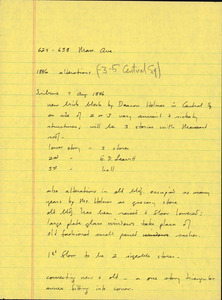 624 - 638 Mass. Ave.
1886 alterations (3-5 Central Sq)
Tribune 7 Aug. 1886
new brick block by Deacon Holmes in Central Sq
on site of 2 or 3 very ancient & rickety
structures; will be 3 stories with Mansard
roof.
lower story - 3 stores
2nd "
3rd " hall
also alterations in old bldg. occupied so many
years by Mr. Holmes as grocery store
old bldg. has been raised & floor lowered;
large plate glass windows take place of
old fashioned small panel sashes.
1st floor to be 2 separate stores.
connecting new & old - a one story triangular
annex fitting into corner.